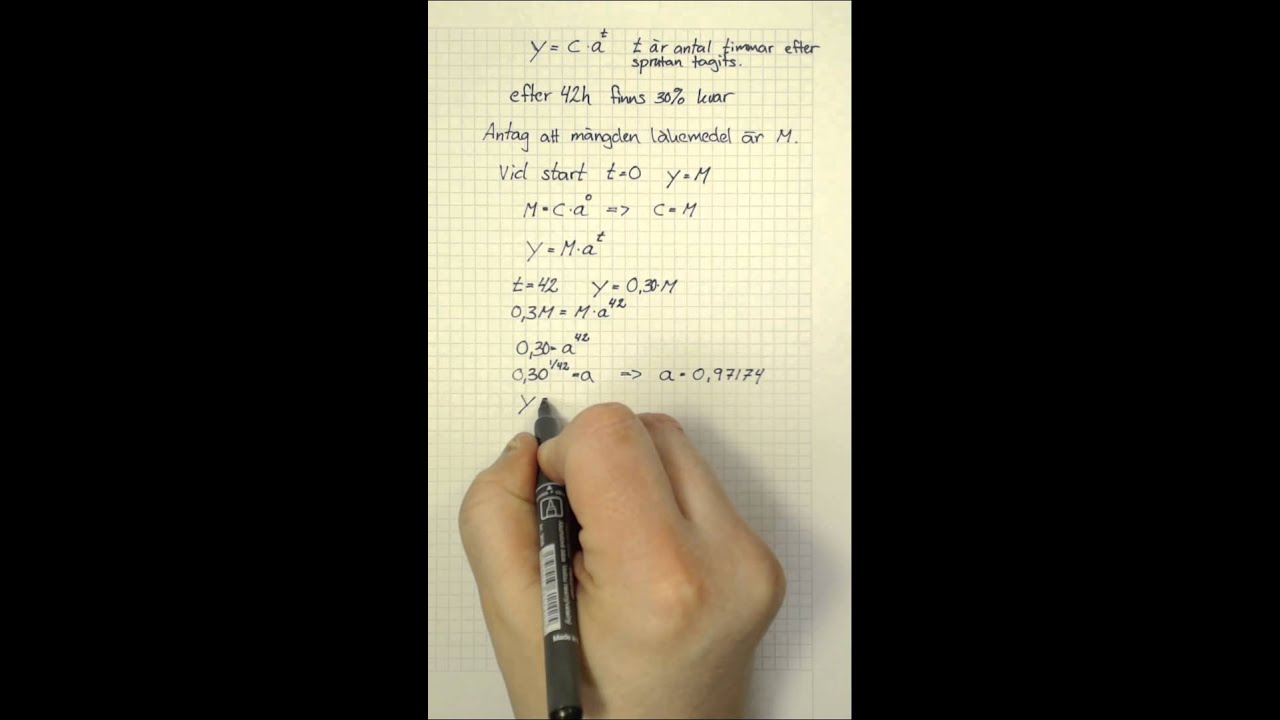 y = C·a^t t är antal timmar efter
sprutan tagits.
efter 42h finns 30% kvar
Antag att mängden läkemedel är M.
Vid start t=0 y=M
M=C·a^0 => C=M
y=M·a^t
t=42 y=0,30·M
0,3M = M·a^42
0,30=a^42
0,30^1/42=a => a=0,97174
y=